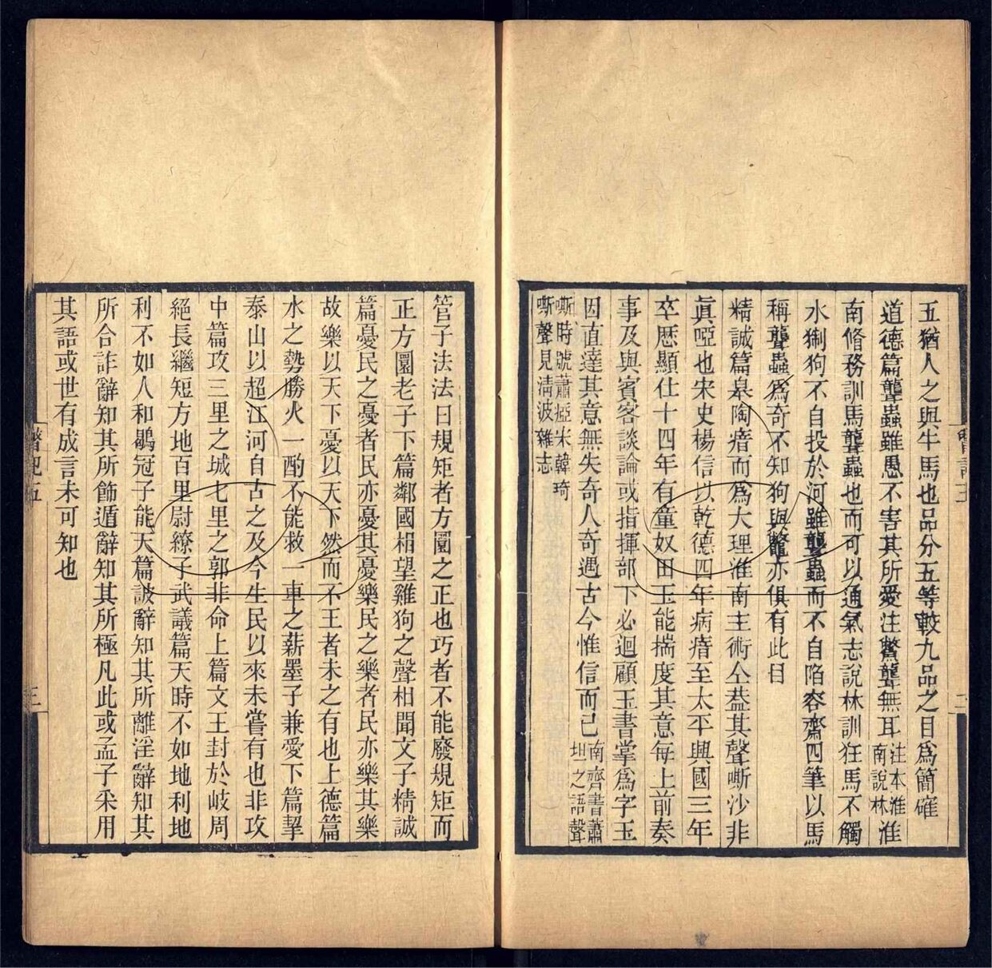 五猶人之與牛馬也品分五等較九品之目爲簡確
道德篇聾蟲雖愚不害其所愛注鷩聾無耳注本淮南說林淮
南脩務訓馬聾蟲也而可以通氣志說林訓狂馬不觸
水猘狗不自投於河雖聾蟲而不自陷容齋四筆以馬
稱聾蟲爲奇不知狗與鼈亦俱有此目
精誠篇皋陶瘖而爲大理淮南主術仝葢其聲嘶沙非
眞啞也宋史楊信以乾德四年病瘖至太平興國三年
卒歷顯仕十四年有童奴田玉能揣度其意每上前奏
事及與賓客談論或指揮部下必迴顧玉書掌爲字玉
因直達其意無失奇人奇遇古今惟信而已南齊書蕭坦之語聲
嘶時號蕭瘂宋韓琦嘶聲見淸波雜志
管子法法曰規矩者方圜之正也巧者不能廢規矩而
正方圜老子下篇鄰國相望雞狗之聲相聞文子精誠
篇憂民之憂者民亦憂其憂樂民之樂者民亦樂其樂
故樂以天下憂以天下然而不王者未之有也上德篇
水之勢勝火一酌不能救一車之薪墨子兼愛下篇挈
泰山以超江河自古之及今生民以來未嘗有也非攻
中篇攻三里之城七里之郭非命上篇文王封於岐周
絕長繼短方地百里尉繚子武議篇天時不如地利地
利不如人和鶡冠子能天篇詖辭知其所離淫辭知其
所合詐辭知其所飾遁辭知其所極凡此或孟子采用
其語或世有成言未可知也
三